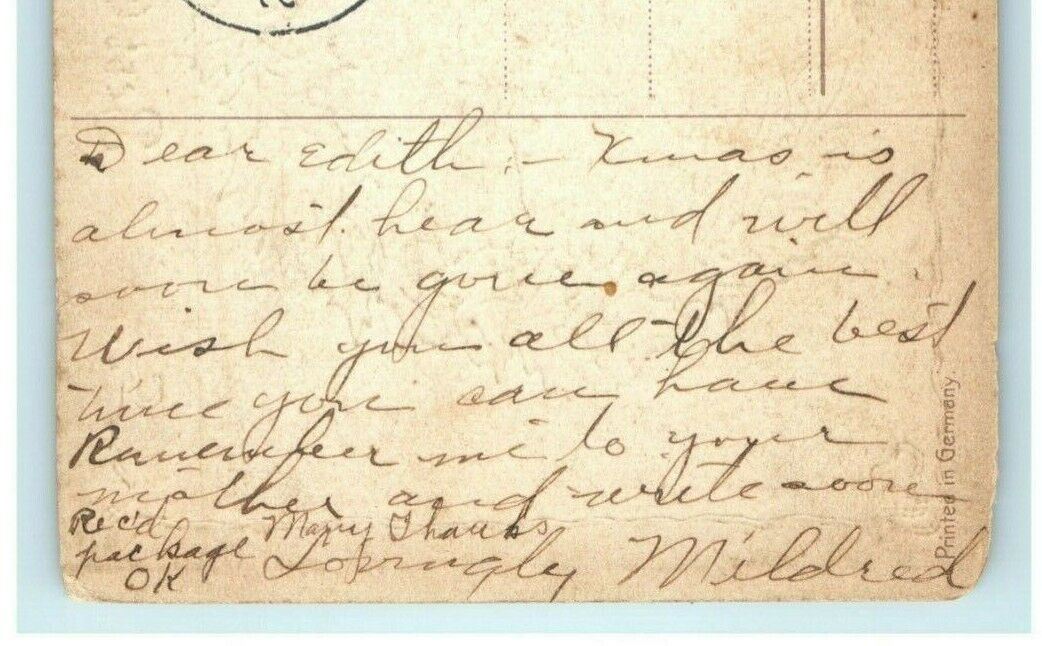 Dear Edith, - Xmas is
almost hear and will
soon be gone again.
Wish you all the best
time you can have
Remember me to your
mother and write soon
Rec'd package OK
Many Thanks
Lovingly Mildred
Printed in Germany.